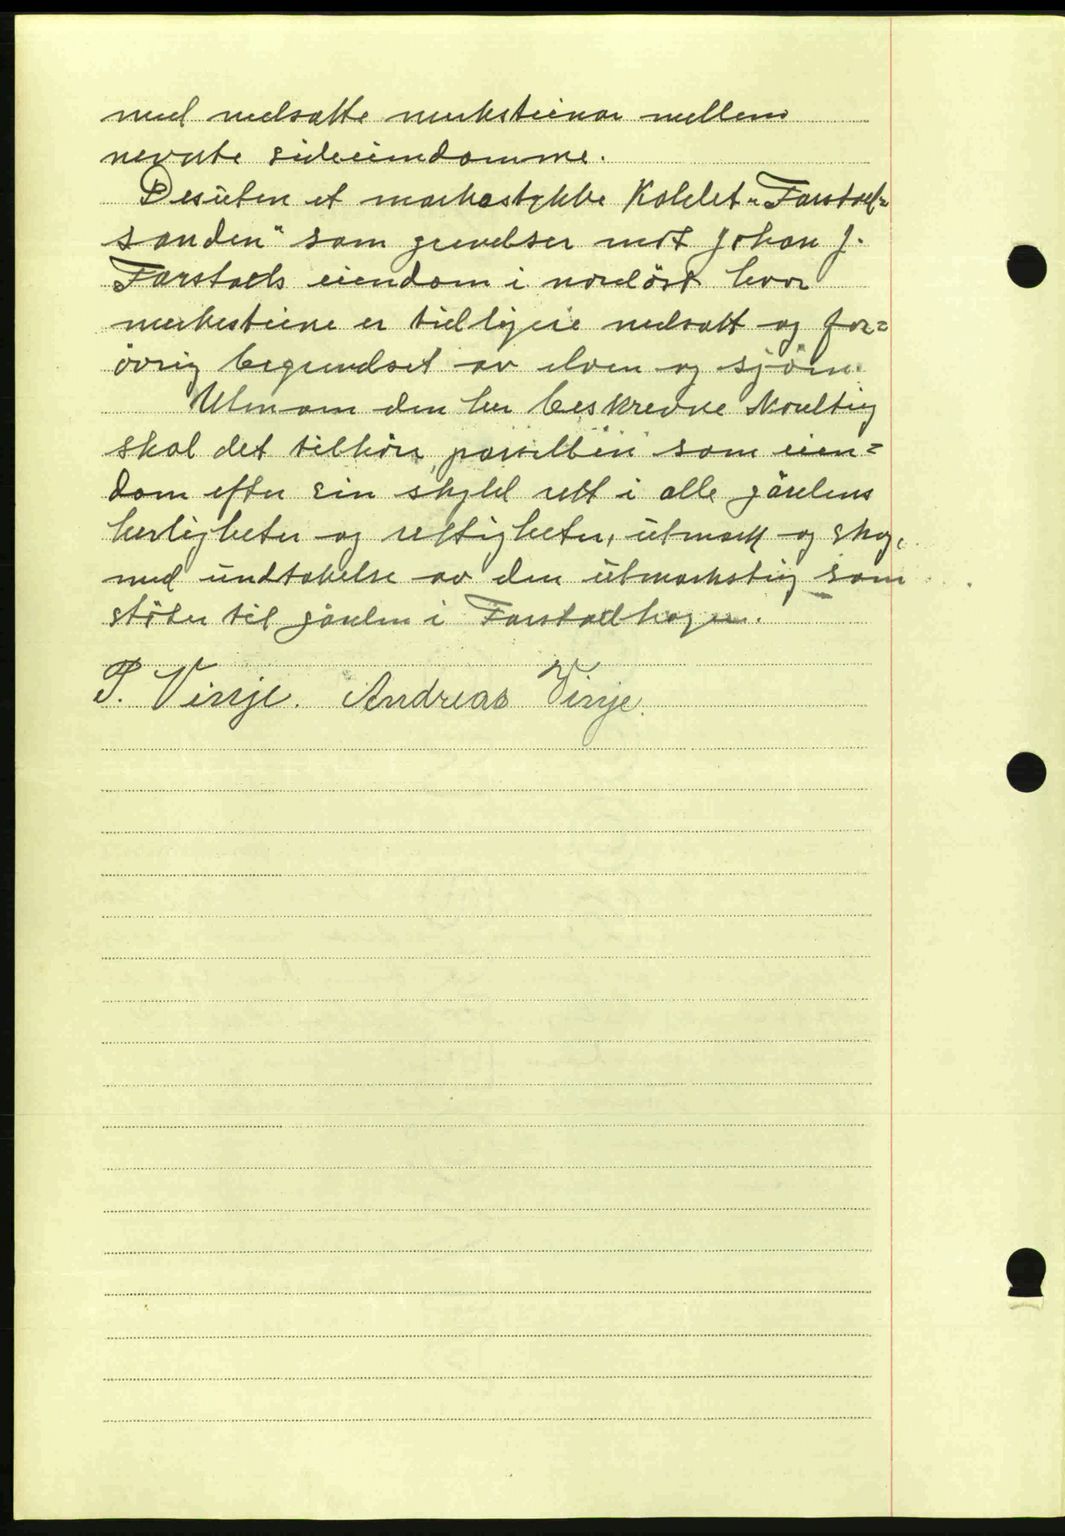 med nedsatte merksteinar mellem
nevnte sideeiendomme.
Desuten et markastykke Kaldet „Farstad-
sanden" som grendser mot Johan J.
Farstads eiendom i nordöst hvor
merkesteine er tidligere nedsatt og for=
övrig begrendset av elven og sjöen.
Utenom den her beskrevne
skal det tilhöre parsellen som eien=
dom efter sin skyld rett i alle gårdens
herligheter og rettigheter, utmark og skog,
med undtakelse av den utmarksteig som
stöter til gården i Farstadhagen.
P. Vinje. Andreas Vinje.